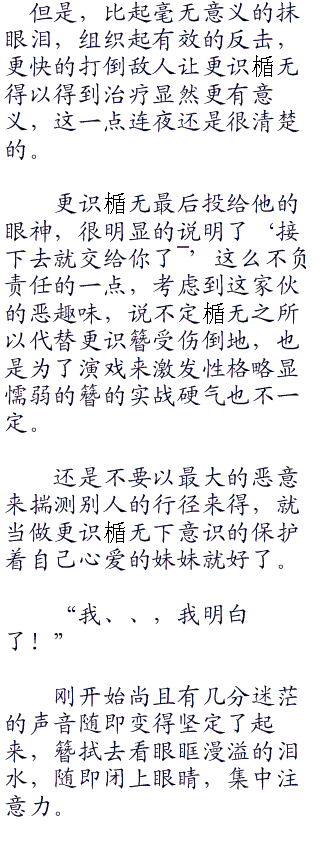 但是，比起毫无意义的抹
眼泪，组织起有效的反击，
更快的打倒敌人让更识楯无
得以得到治疗显然更有意
义，这一点连夜还是很清楚
的。
更识楯无最后投给他的
眼神，很明显的说明了‘接
下去就交给你了~’这么不负
责任的一点，考虑到这家伙
的恶趣味，说不定楯无之所
以代替更识簪受伤倒地，也
是为了演戏来激发性格略显
懦弱的簪的实战硬气也不一
定。
还是不要以最大的恶意
来揣测别人的行径来得，就
当做更识楯无下意识的保护
着自己心爱的妹妹就好了。
“我、、，我明白
了！”
刚开始尚且有几分迷茫
的声音随即变得坚定了起
来，簪拭去看眼眶漫溢的泪
水，随即闭上眼睛，集中注
意力。